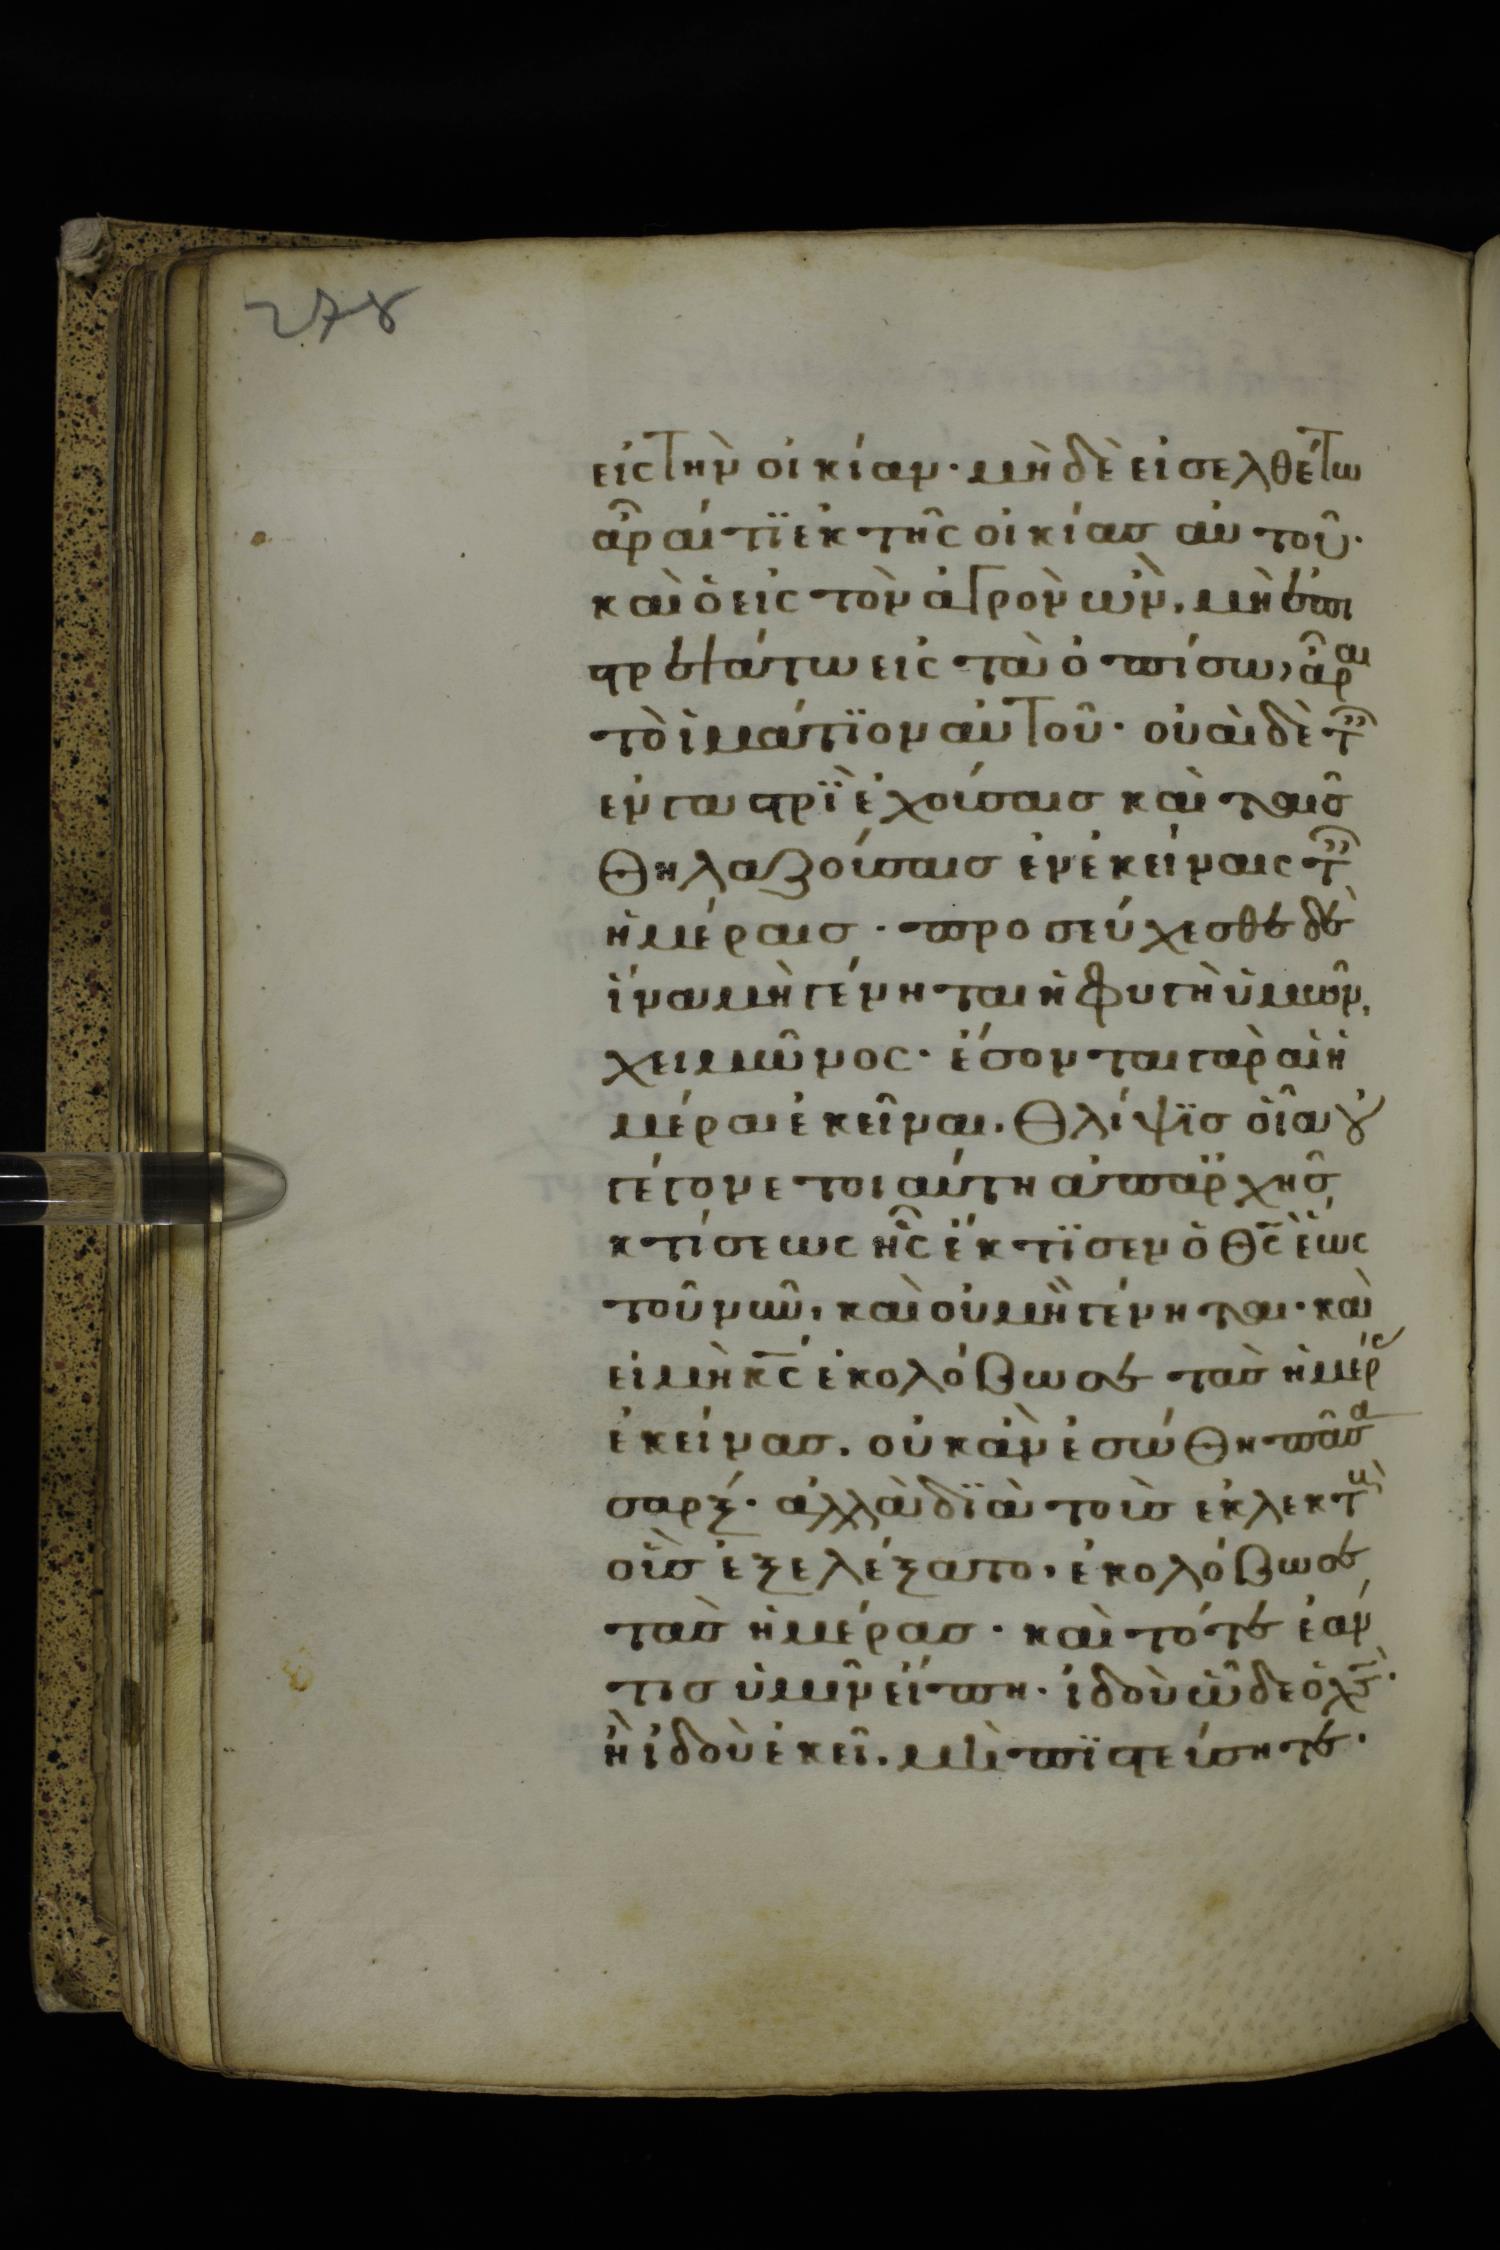 278
εἰς τὴν οἰκίαν· μὴ δὲ εἰσελθέτω
ἆραί τϊ ἐκ τῆς οἰκίας αὐτοῦ·
καὶ ὁ εἰς τὸν ἀγρὸν ὢν, μὴ ἐπι
στρεψάτω εἰς τὰ ὀπίσω, ἆραι
τὸ ἱμάτϊον αὐτοῦ· οὐαὶ δὲ τ
ἐν γαστρϊ ἐχούσαις καὶ ταῖς
θηλαζούσαις ἐν ἐκείναις τ
ἡμέραις· προσεύχεσθε δὲ
ἵνα μὴ γένηται ἡ φυγὴ ὑμῶν,
χειμῶνος· ἔσονται γὰρ αἱ ἡ
μέραι ἐκεῖναι, θλίψϊς οἵα οὐ
γέγονε τοιαύτη ἀπαρχῆς
κτίσεως ἧς ἔκτϊσεν ὁ θς ἕως
τοῦ νῦν, καὶ οὐ μὴ γένηται· καὶ
εἰ μὴ κς ἐκολόβωσε τὰς ἡμέρ
ἐκείνας, οὐκ ἂν ἐσώθη πᾶσα
σαρξ· ἀλλὰ δϊὰ τοὺς ἐκλεκτ
οὓς ἐξελέξατο, ἐκολόβωσε
τὰς ἡμέρας· καὶ τότε ἐάν
τις ὑμῖν εἴπη· ἰδοὺ ὧδε ὁ χς·
ἢ ἰδοὺ ἐκεῖ, μὴ πϊστεύσητε·